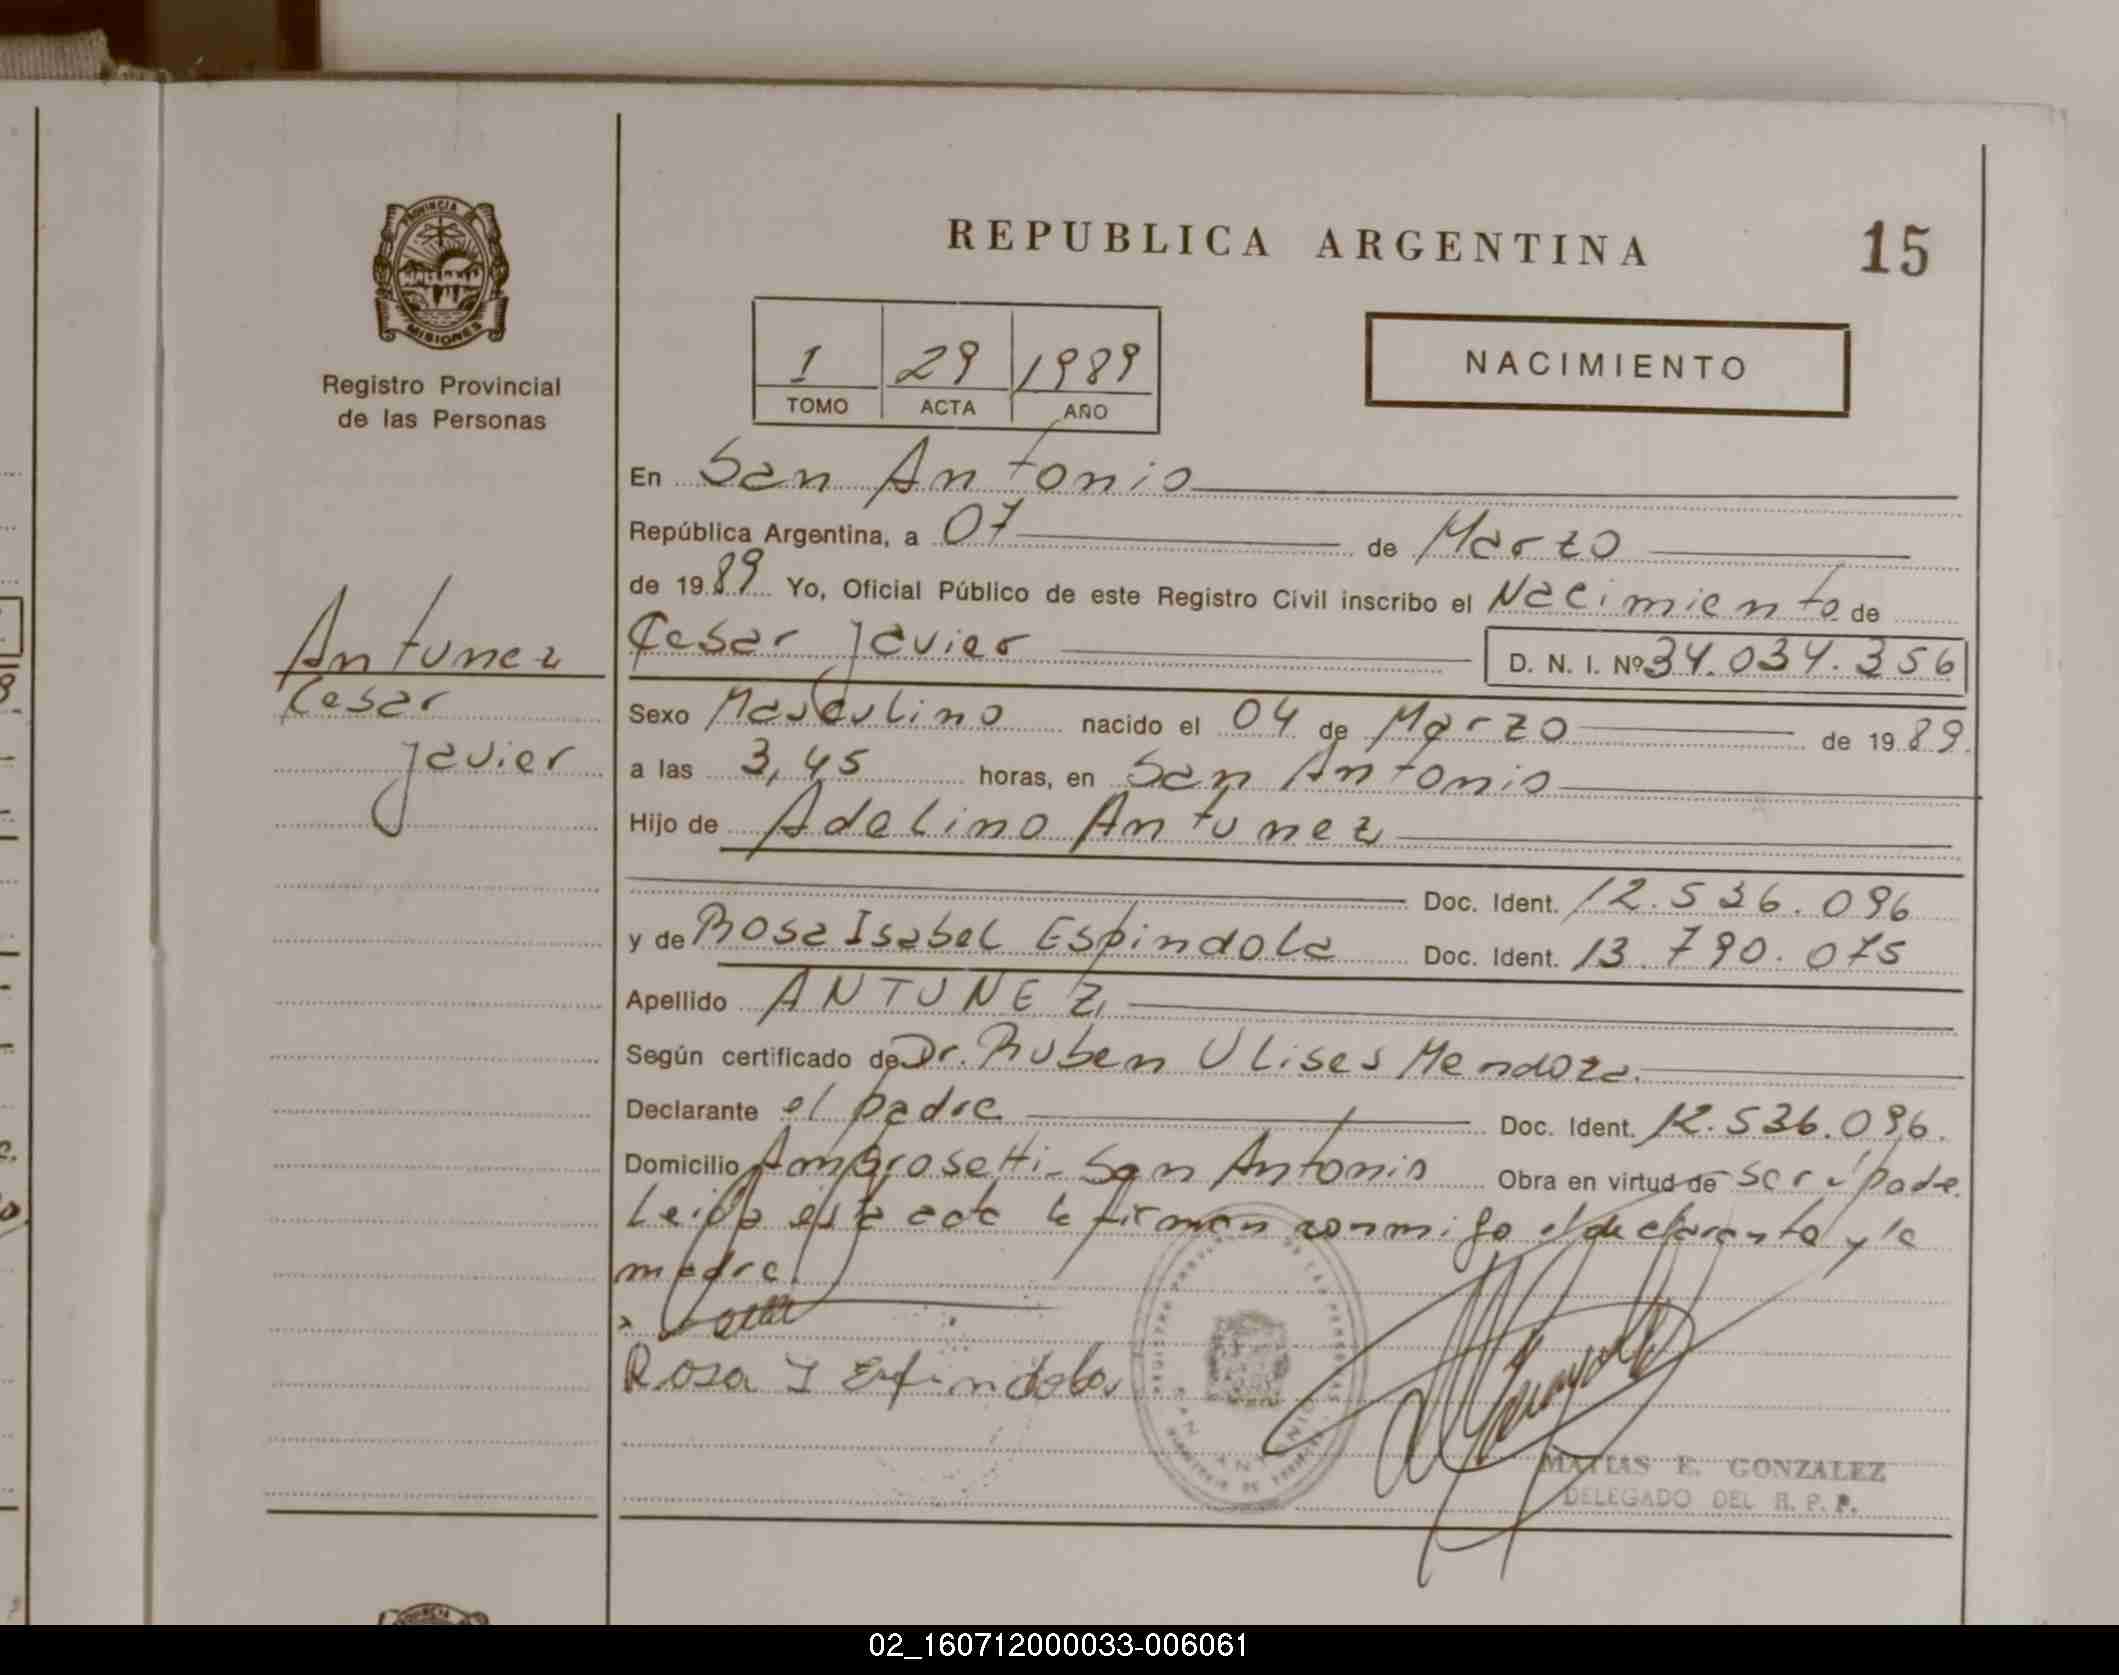 PROVINCIA DE
MISIONES
Registro Provincial
de las Personas
REPUBLICA ARGENTINA
15
I 29 1989
TOMO ACTA AÑO
NACIMIENTO
En San Antonio
República Argentina, a 07 de Marzo
de 1989 Yo, Oficial Público de este Registro Civil inscribo el Nacimiento de
Cesar Javier D. N. I. Nº 34.034.356
Antunez
Cesar
Javier
Sexo Masculino nacido el 04 de Marzo de 1989.
a las 3,45 horas, en San Antonio
Hijo de Adelino Antunez
Doc. Ident. 12.536.096
y de Rosa Isabel Espindola Doc. Ident. 13.790.075
Apellido ANTUNEZ
Según certificado de Dr. Ruben Ulises Mendoza.
Declarante el padre Doc. Ident. 12.536.096.
Domicilio Ambrosetti-San Antonio Obra en virtud de ser padre.
Leida esta acta la firman conmigo el declarante y la
madre
Rosa I Espindola
SAN ANTONIO
MATIAS E. GONZALEZ
DELEGADO DEL R. P. P.
02_160712000033-006061